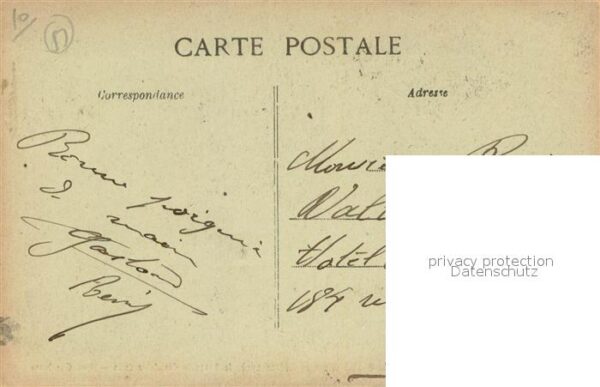 10/
51
CARTE POSTALE
Correspondance
Adresse
Bonne poignée
d main
Gaston
Monsie
Val
Hotel
184 r
privacy protection
Datenschutz